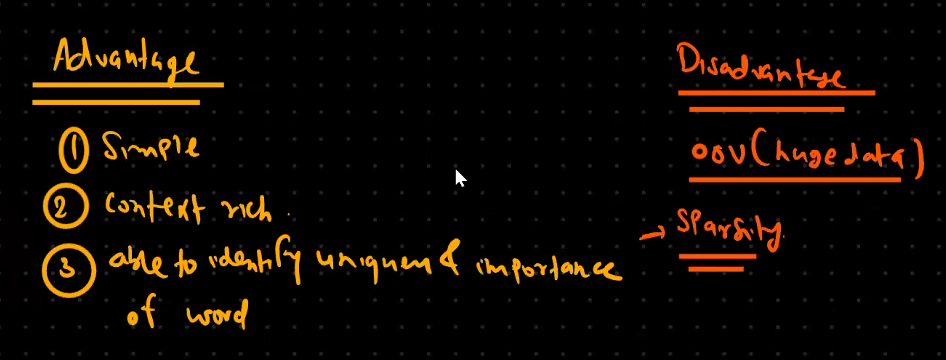 Advantage
① Simple
② context rich.
③ able to identify uniquen & importance
of word
Disadvantage
OOV (huge data)
→ Sparsity.